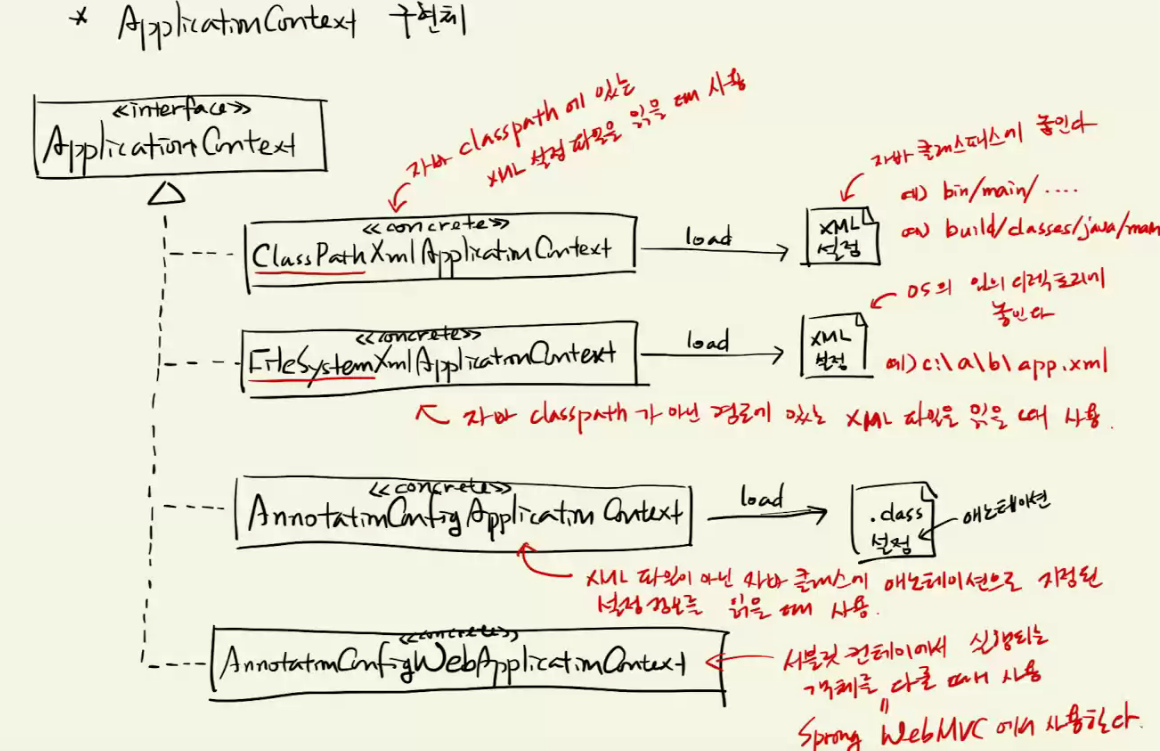 * ApplicationContext 구현체
<<interface>>
ApplicationContext
자바 classpath에 있는
XML 설정 파일을 읽을 때 사용
<<concrete>>
ClassPathXmlApplicationContext
load
XML
설정
자바 클래스패스에 놓인다
예) bin/main/....
예) build/classes/java/main
<<concrete>>
FileSystemXmlApplicationContext
load
XML
설정
OS의 임의 디렉토리에
놓인다
예) c:\a\b\app.xml
자바 classpath가 아닌 경로에 있는 XML 파일을 읽을 때 사용.
<<concrete>>
AnnotationConfigApplicationContext
load
.class
설정
애노테이션
XML 파일이 아닌 자바 클래스에 애노테이션으로 지정된
설정정보를 읽을 때 사용.
<<concrete>>
AnnotationConfigWebApplicationContext
서블릿 컨테이에서 실행되는
객체를 다룰 때 사용
"
Spring WebMVC에서 사용한다.